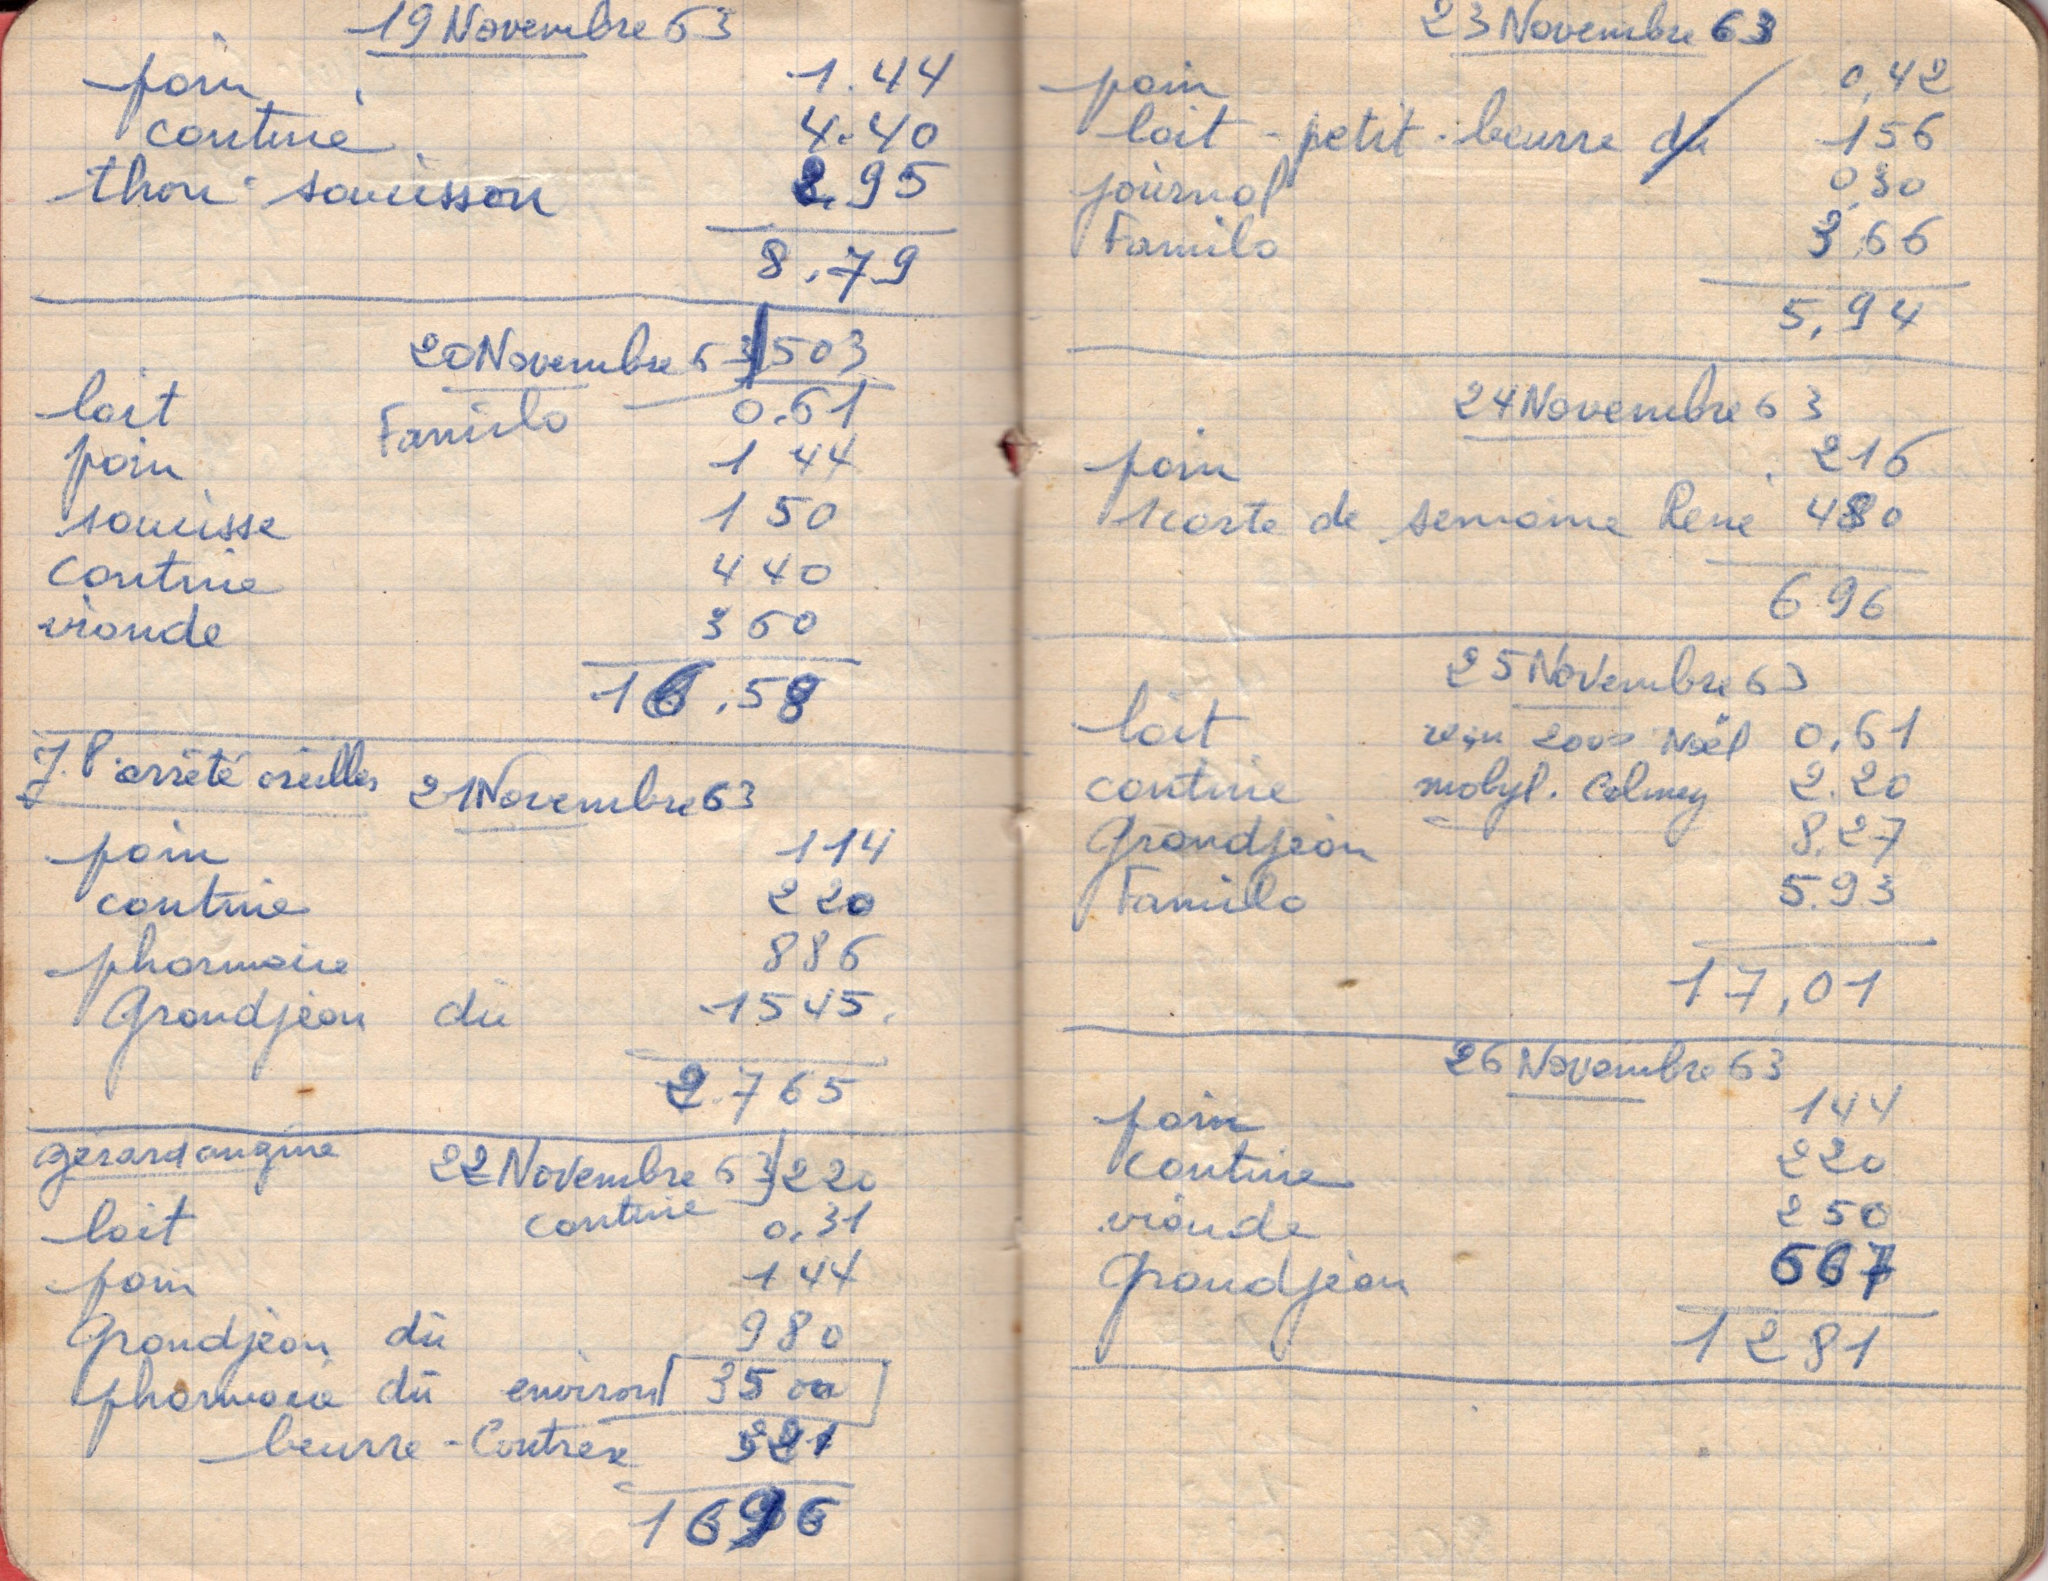 19 Novembre 63
pain 1.44
cantine 4.40
thon - saucisson 2.95
8.79
20 Novembre 63 503
lait Familo 0.61
pain 1 44
saucisse 1 50
cantine 4 40
viande 3 60
16.58
J.P. arrêté oreilles 21 Novembre 63
pain 114
cantine 220
pharmacie 886
Grandjean dû 1545.
2.765
Gérard angine 22 Novembre 63 220
lait cantine 0.31
pain 1 44
Grandjean dû 980
pharmacie dû environ 35 00
beurre - Contrex 321
1696
23 Novembre 63
pain 0,42
lait - petit - beurre du 156
journal 0,30
Familo 3,66
5,94
24 Novembre 63
pain 216
1 carte de semaine René 480
6 96
25 Novembre 63
lait 2000 Noël 0,61
cantine mobyl. Colmey 2.20
Grandjean 8.27
Familo 5.93
17,01
26 Novembre 63
pain 144
cantine 220
viande 250
Grandjean 667
1281